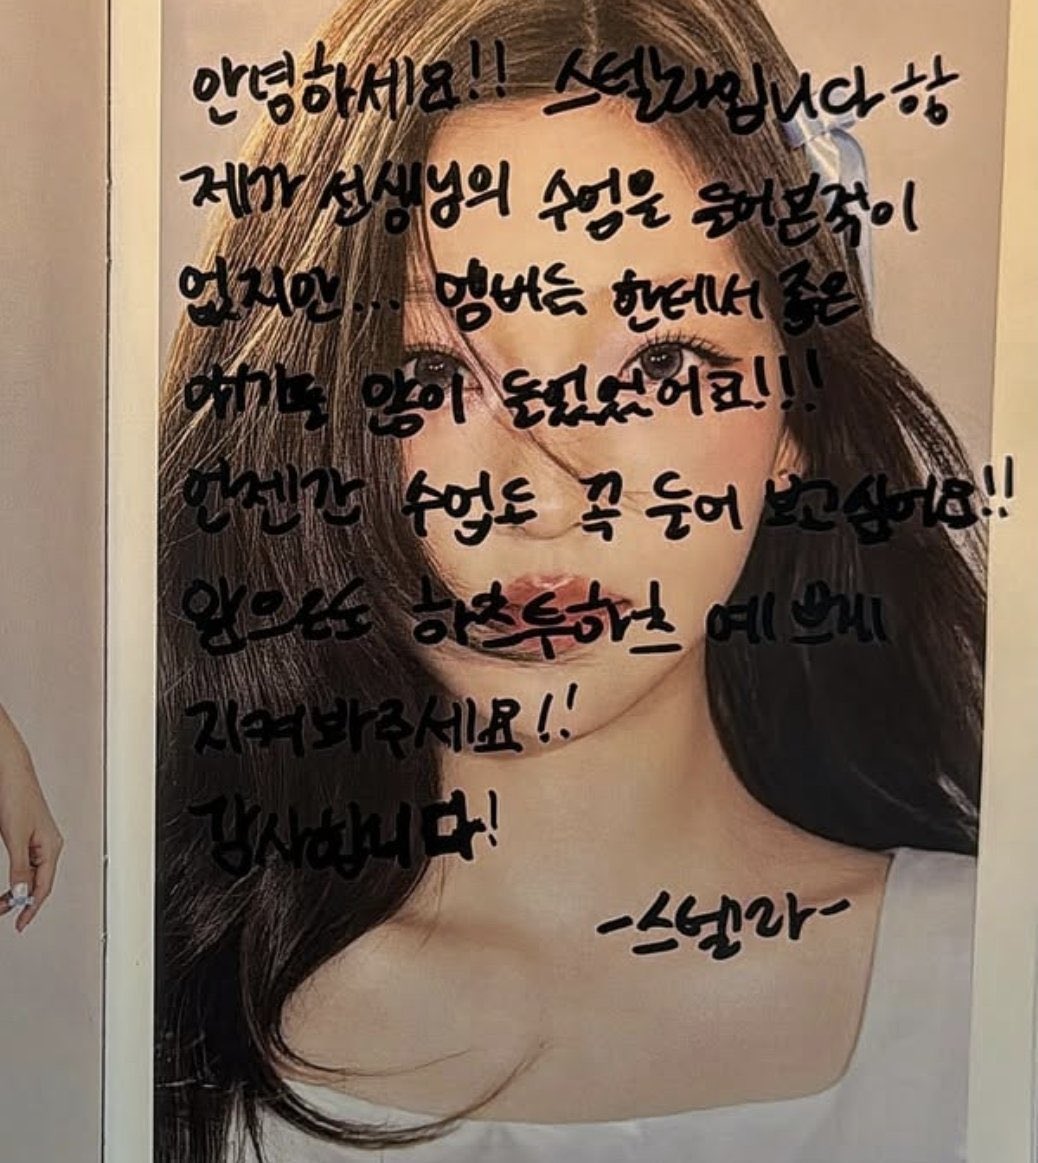 안녕하세요!! 스텔라입니다 핳
제가 선생님의 수업을 들어본적이
없지만... 멤버들 한테서 좋은
얘기도 많이 들었었어요!!!
언젠간 수업도 꼭 들어 보고싶어요!!
앞으로도 하츠투하츠 예쁘게
지켜봐주세요!!
감사합니다!
-스텔라-